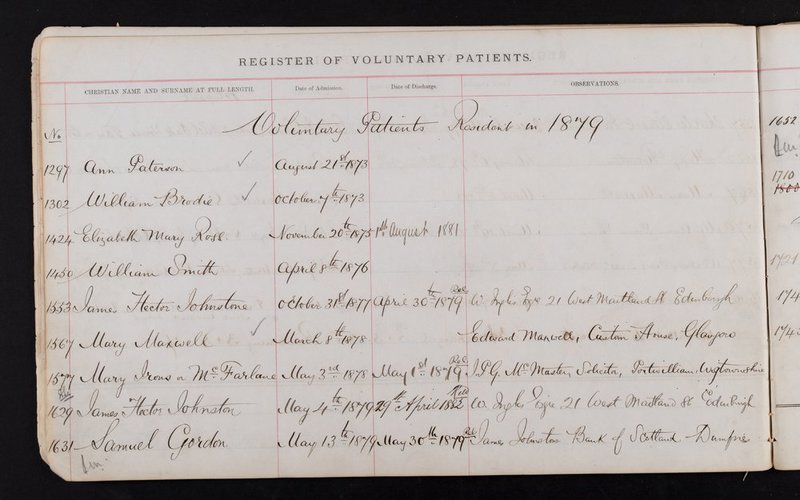 REGISTER OF VOLUNTARY PATIENTS.
CHRISTIAN NAME AND SURNAME AT FULL LENGTH. Date of Admission. Date of Discharge. OBSERVATIONS.
No. Voluntary Patients Resident in 1879
1297 Ann Paterson ✓ August 21st 1873
1302 William Brodie ✓ October 7th 1873
1424 Elizabeth Mary Ross November 20th 1875 1st August 1881
1450 William Smith April 8th 1876
1553 James Hector Johnstone October 31st 1877 April 30th 1879 Rel. W. Inglis 21 West Maitland St Edinburgh
1567 Mary Maxwell ✓ March 8th 1878 Edward Maxwell, Custom House, Glasgow
1577 Mary Irons or McFarlane May 3rd 1878 May 1st 1879 Rel. McMaster, Solicitor, Portwilliam, Wigtownshire
1629 James Hector Johnston May 4th 1879 29th April 1882 W. Inglis 21 West Maitland St Edinburgh
1631 Samuel Gordon May 13th 1879 May 30th 1879 Rel. James Johnston Bank of Scotland Dumfries
1652
1710